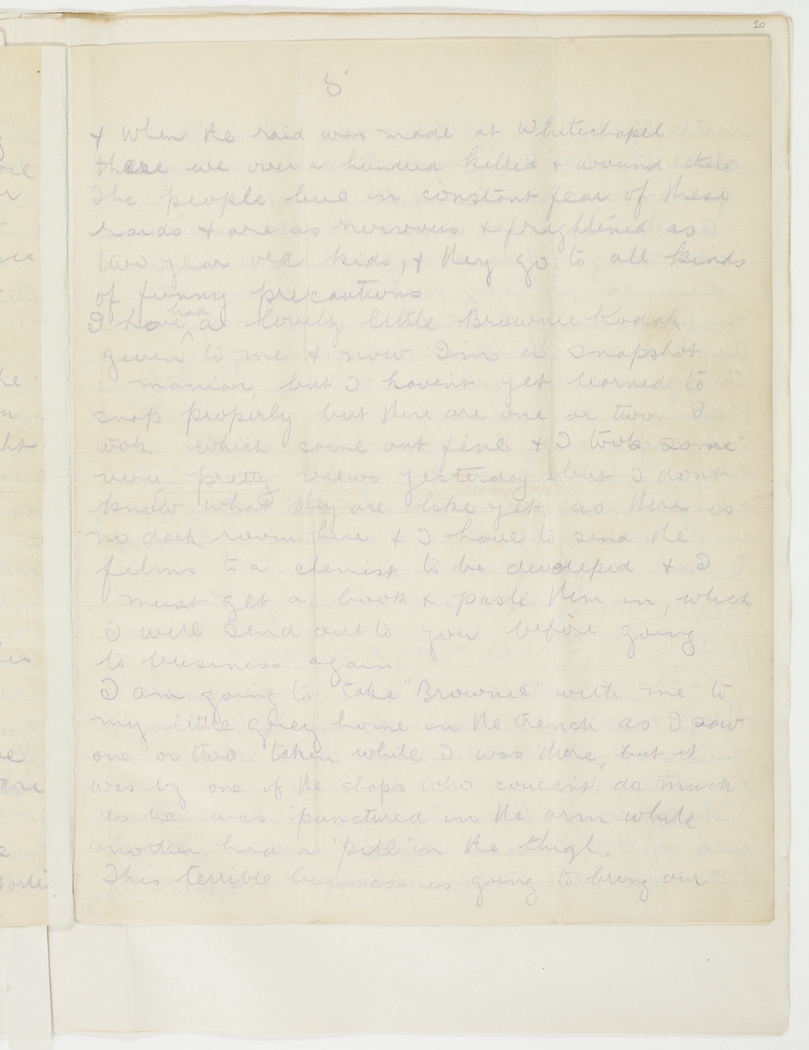 20
8
& when the raid was made at Whitechapel
there we over a hundred killed & wound there
The people live in constant fear of these
raids & are as nervous & frightened as
two year old kids, & they go to all kinds
of funny precautions
had
I have a lovely little Brownie Kodak
given to me & now I'm a snapshot
maniac, but I havent yet learned to
snap properly but there are one or two I
took which come out fine & I took some
very pretty views yesterday but I dont
know what they are like yet as there is
no dark room here & I have to send the
films to a chemist to be develeped & I
must get a book & paste them in, which
I will send out to you before going
to business again
I am going to take "Brownie" with me to
my little grey home in the trench as I saw
one or two taken while I was there, but it
was by one of the chaps who couldnt do much
as he was "punctured in the arm while
another had a "pill" in the thigh.
This terrible business is going to bring our